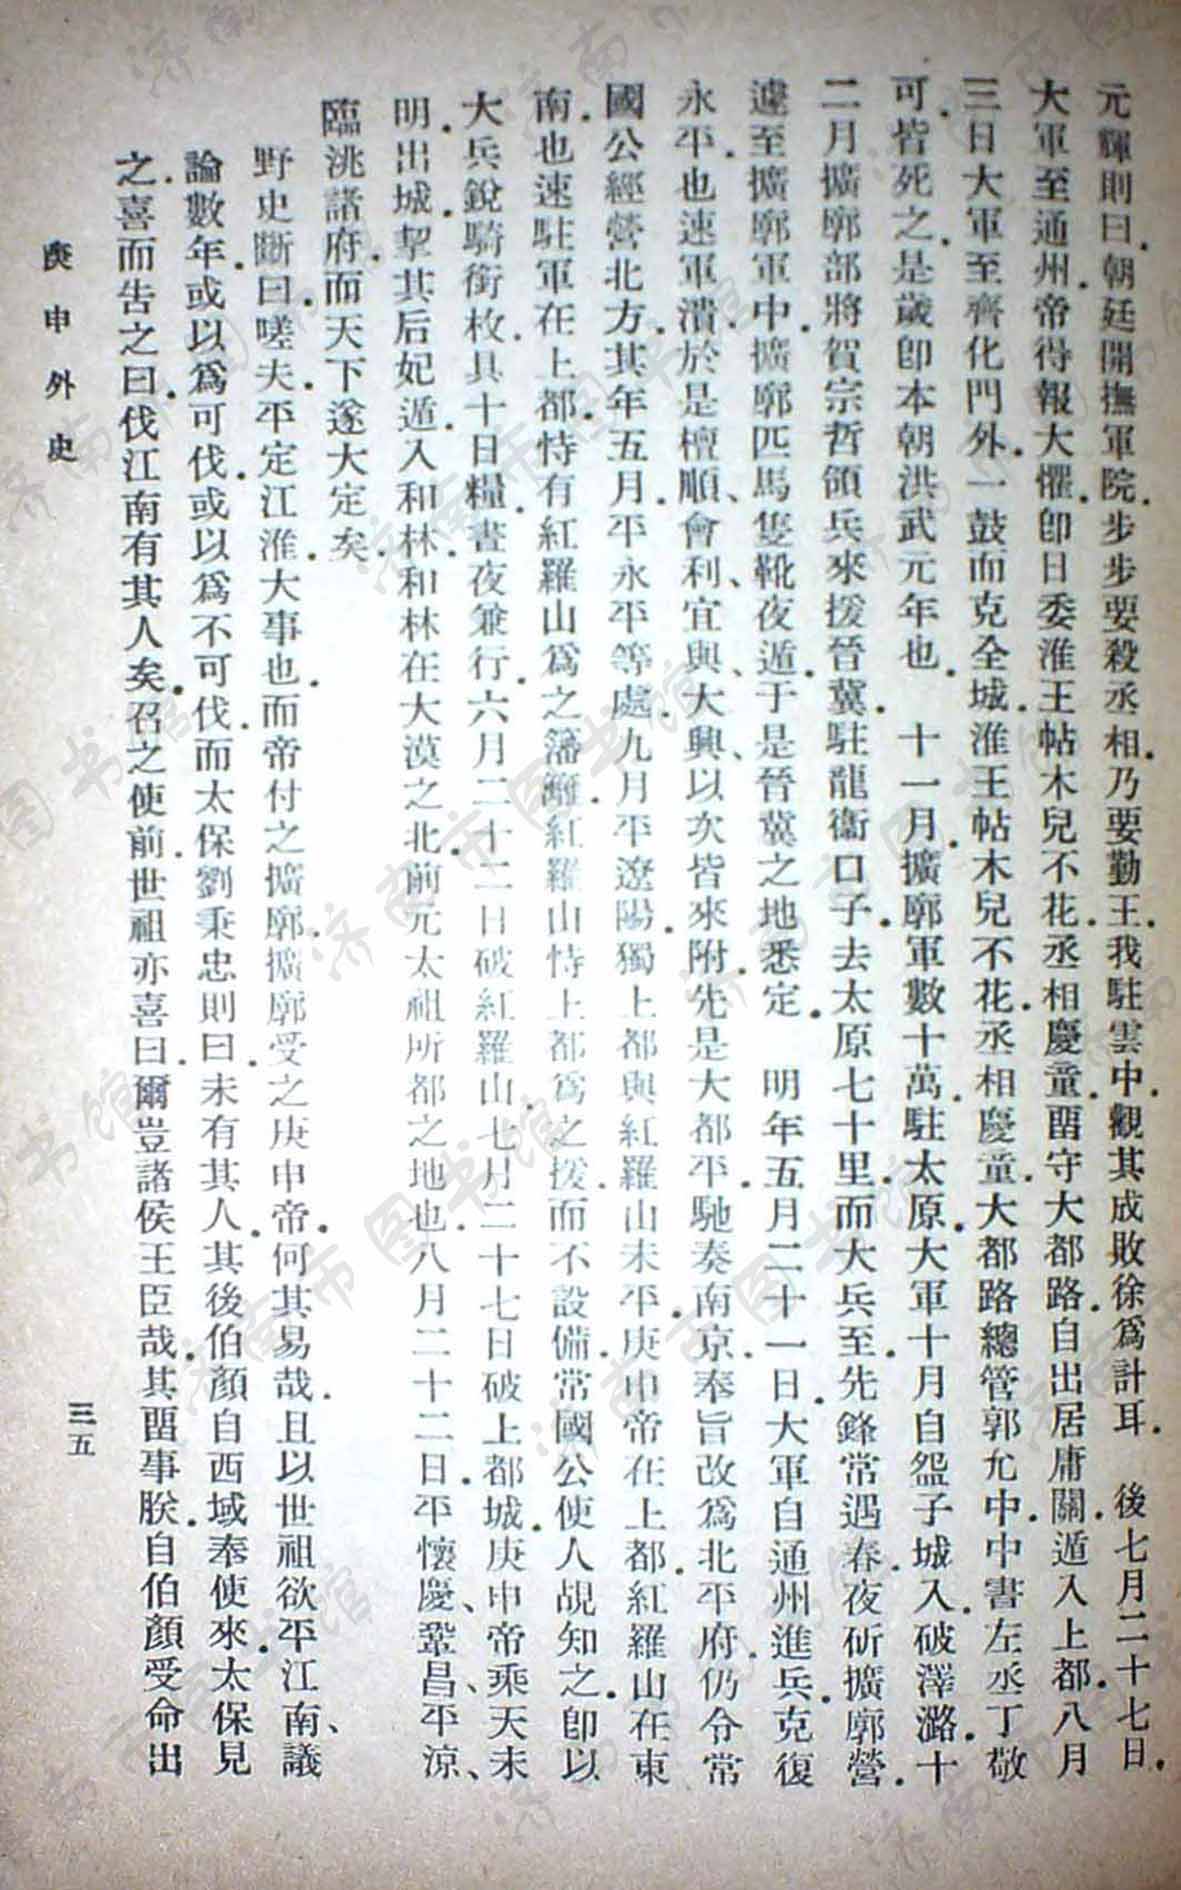 元輝則曰。朝廷開撫軍院。步步要殺丞相。乃要勤王。我駐雲中。觀其成敗徐爲計耳。　後七月二十七日。
大軍至通州。帝得報大懼。卽日委淮王帖木兒不花。丞相慶童。畱守大都路。自出居庸關。遁入上都。八月
三日大軍至齊化門外。一鼓而克全城。淮王帖木兒不花。丞相慶童。大都路總管郭允中。中書左丞丁敬
可。皆死之。是歲卽本朝洪武元年也。　十一月。擴廓軍數十萬。駐太原。大軍十月自盌子城入。破澤潞。十
二月擴廓部將賀宗哲領兵來援晉冀。駐龍衞口子。去太原七十里。而大兵至。先鋒常遇春夜斫擴廓營。
遽至擴廓軍中。擴廓匹馬隻靴夜遁。于是晉冀之地悉定。　明年五月二十一日。大軍自通州進兵。克復
永平。也速軍潰。於是檀順、會利、宜興、大興、以次皆來附。先是大都平。馳奏南京。奉旨改爲北平府。仍令常
國公經營北方。其年五月。平永平等處。九月平遼陽。獨上都與紅羅山未平。庚申帝在上都。紅羅山在東
南。也速駐軍在上都。恃有紅羅山爲之籓籬。紅羅山恃上都爲之援。而不設備。常國公使人覘知之。卽以
大兵銳騎銜枚。具十日糧。晝夜兼行。六月二十二日破紅羅山。七月二十七日破上都城。庚申帝乘天未
明。出城。挈其后妃遁入和林。和林在大漠之北。前元太祖所都之地也。八月二十二日。平懷慶、鞏昌、平涼、
臨洮諸府。而天下遂大定矣。
野史斷曰。嗟夫。平定江淮。大事也。而帝付之擴廓。擴廓受之庚申帝。何其易哉。且以世祖欲平江南、議
論數年。或以爲可伐。或以爲不可伐。而太保劉秉忠則曰。未有其人。其後伯顏自西域奉使來。太保見
之。喜而告之曰。伐江南有其人矣。召之使前。世祖亦喜曰。爾豈諸侯王臣哉。其畱事朕。自伯顏受命出
庚申外史
三五